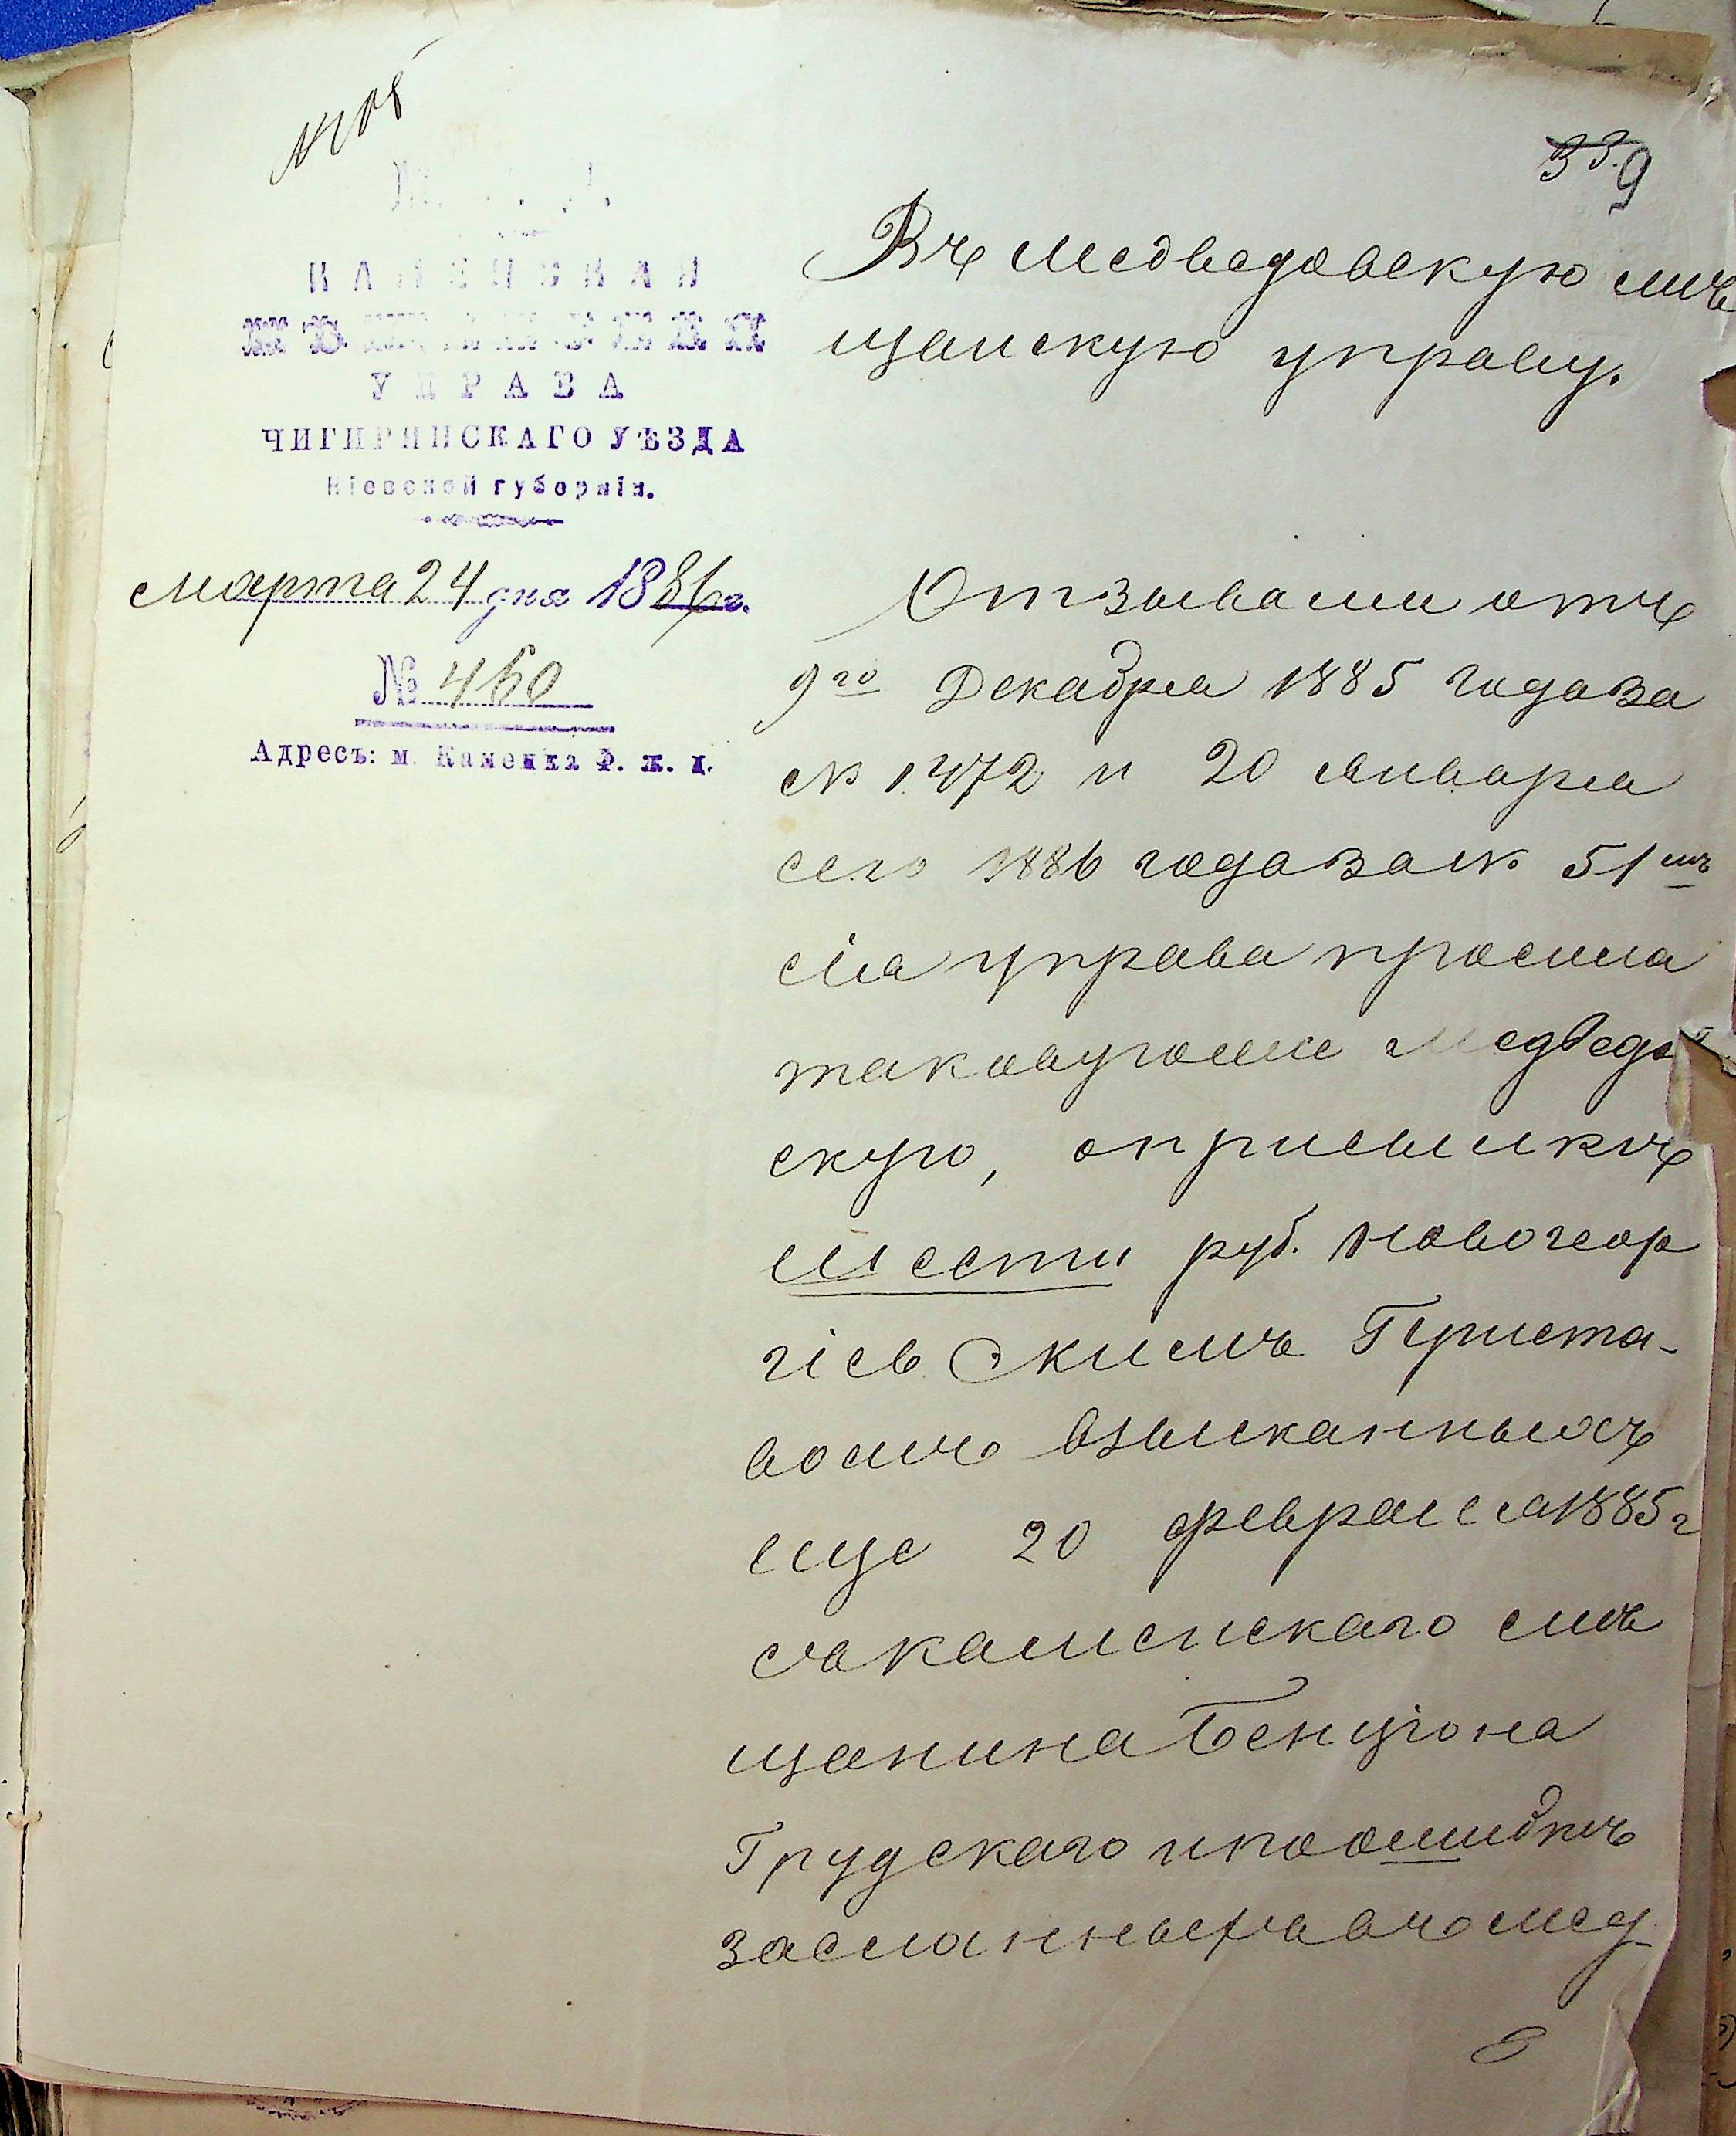 339
КАМЕНСКАЯ
МѢЩАНСКАЯ
УПРАВА
ЧИГИРИНСКАГО УѢЗДА
Кіевской губерніи.
Марта 24 дня 1886 г.
№ 460
Адресъ: м. Каменка Ф. ж. д.
Въ Медведовскую мѣ
щанскую управу.
Отзывами отъ
9го Декабря 1885 года за
№ 1472 и 20 Января
сего 1886 года за № 51мъ
сія управа просила
таковую же Медведов
скую, о присылкѣ
шести руб. Новогеор
гіевскимъ Приста-
вомъ взысканныхъ
еще 20 февраля 1885 г
съ каменскаго мѣ
щанина Бенціона
Грудскаго и по ошибкѣ
засланныхъ въ Мед